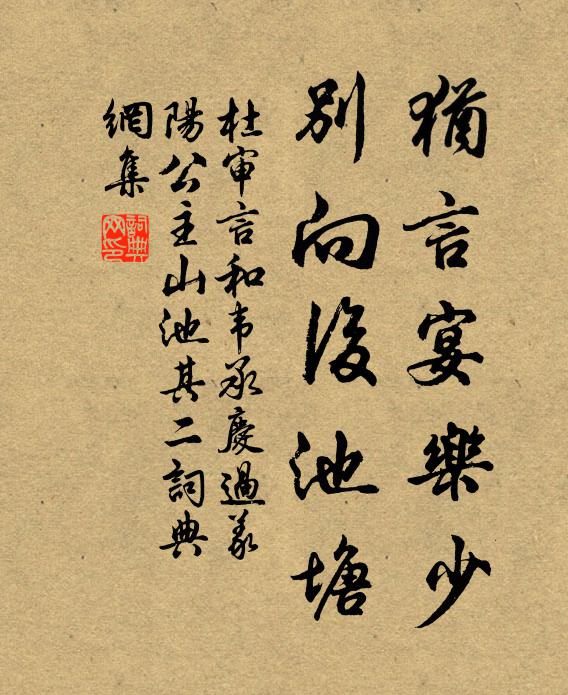 猶言宴樂少
別向後池塘
杜審言和韦承慶過義
陽公主山池其二詞典
網集
詞典網印